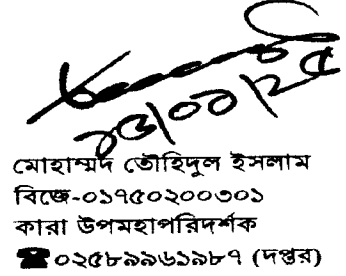 মোহাম্মদ তৌহিদুল ইসলাম
বিজে-০১৭৫০২০০৩০১
কারা উপমহাপরিদর্শক
☎০২৫৮৯৯৬১৯৮৭ (দপ্তর)